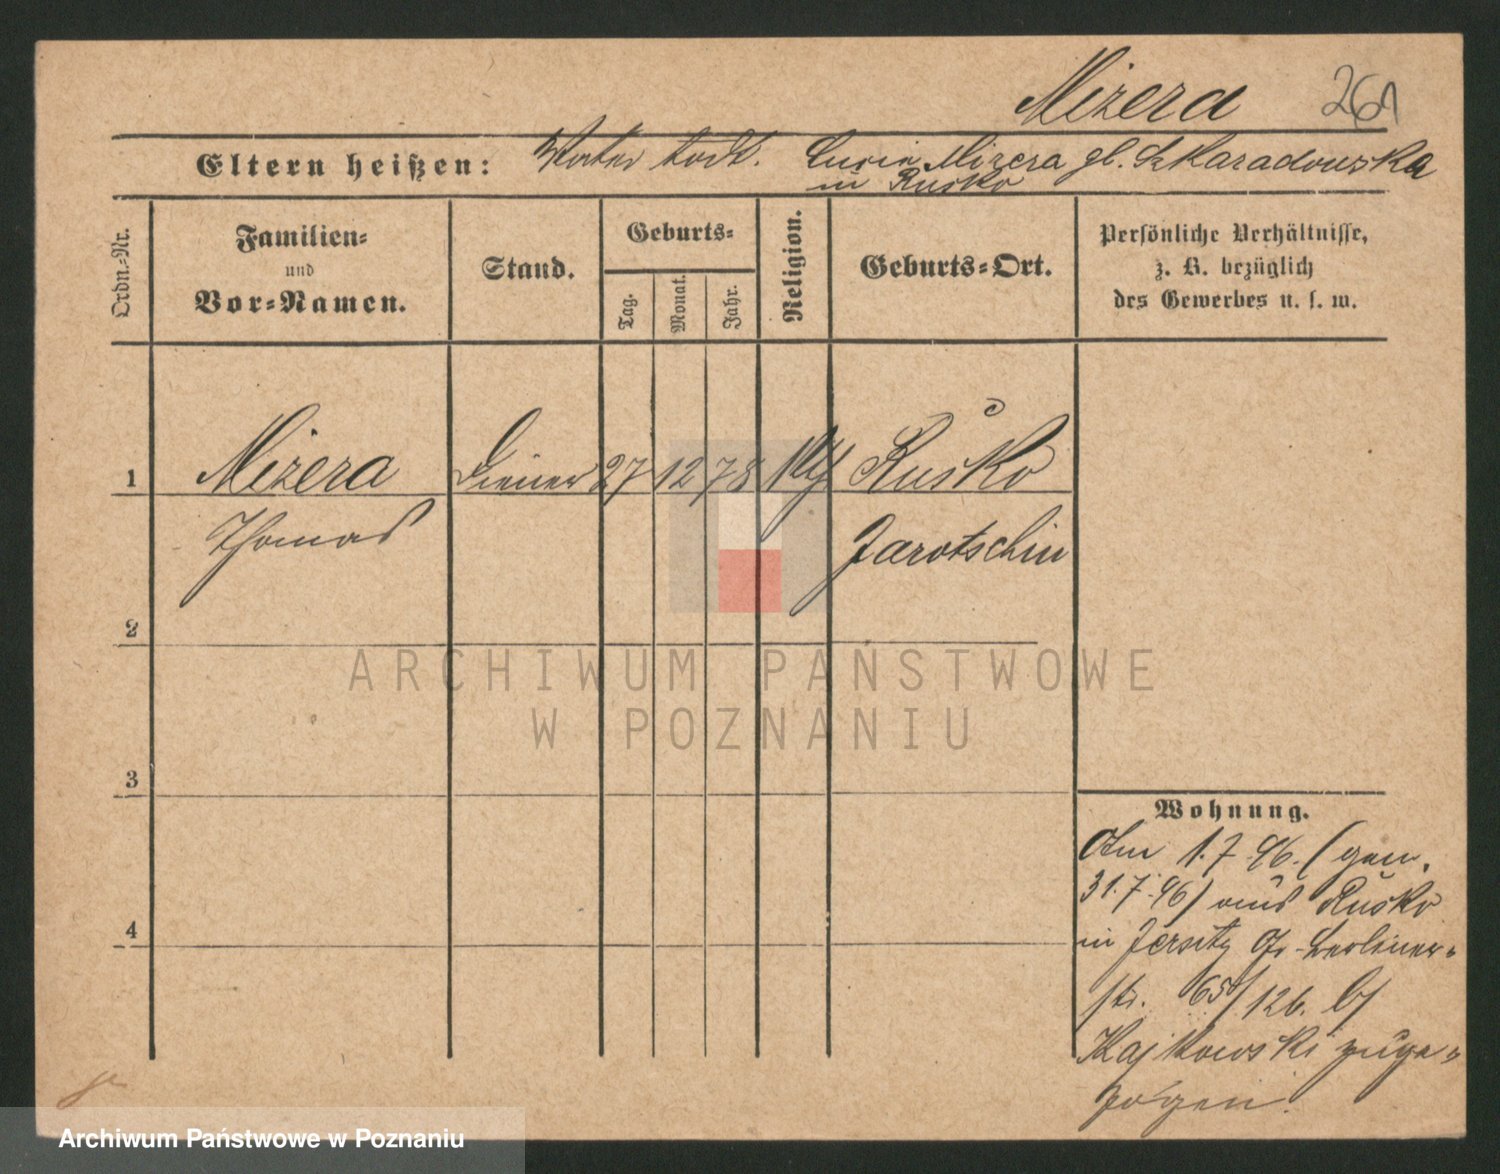 Mizera 261
Eltern heißen: Vater todt. Lucia Mizera gb. Szkaradowska
in Rusko
Ordn.-Nr.
Familien-
und
Vor-Namen.
Stand.
Geburts-
Tag.
Monat.
Jahr.
Religion.
Geburts-Ort.
Persönliche Verhältnisse,
z. B. bezüglich
des Gewerbes u. s. w.
1 Mizera Diener 27 12 78 Rusko
Thomas Jarotschin
2
3
4
Wohnung.
Am 1.7.96. (gem.
31.7.96) aus Rusko
in Jersitz Gr. Berliner-
str. 65/126. b/
Kajkowski zuge-
zogen.
ARCHIWUM PAŃSTWOWE
W POZNANIU
Archiwum Państwowe w Poznaniu